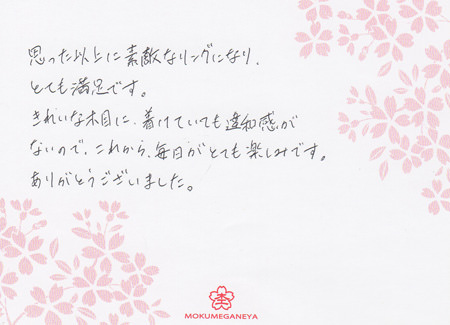 思った以上に素敵なリングになり、
とても満足です。
きれいな木目に、着けていても違和感が
ないので、これから、毎日がとても楽しみです。
ありがとうございました。
MOKUMEGANEYA